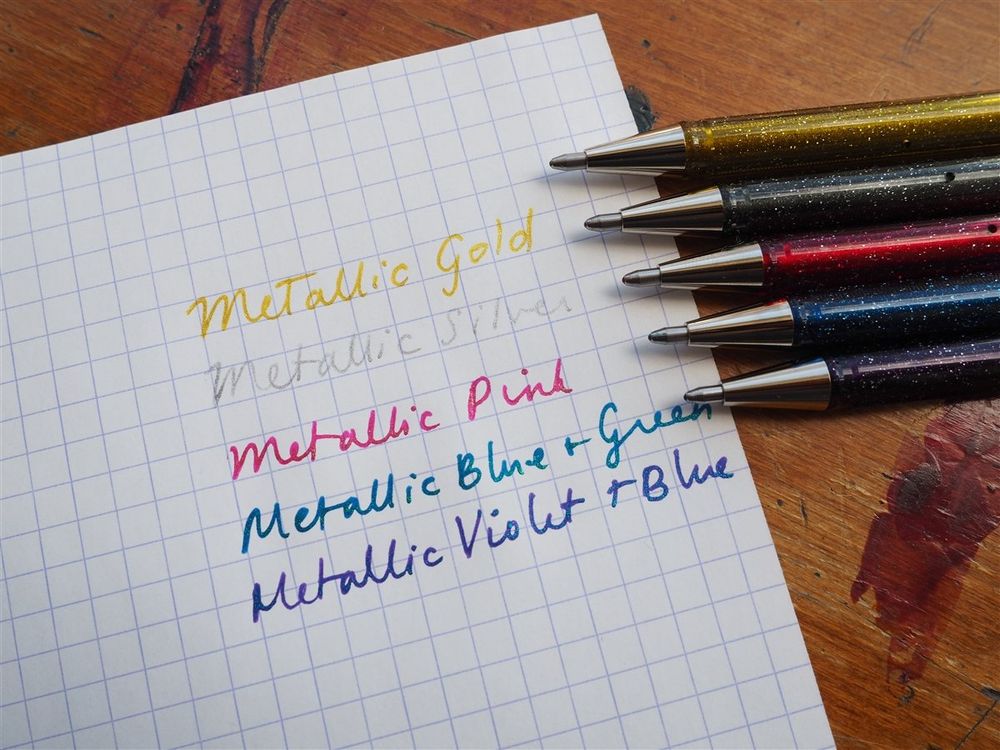 Metallic Gold
Metallic Silver
Metallic Pink
Metallic Blue + Green
Metallic Violet + Blue